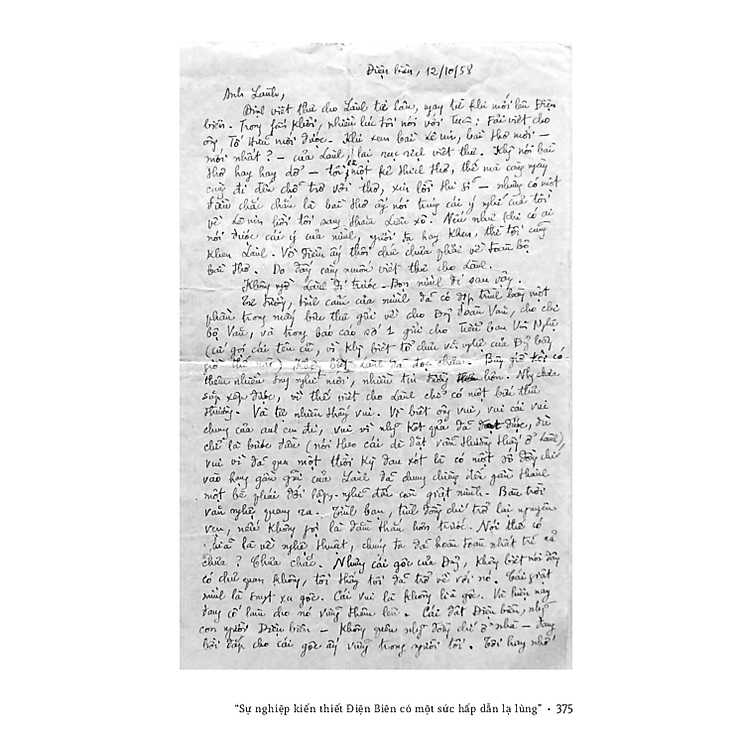 Điện biên, 12/10/58
Anh Lành,
Định viết thư cho Lành từ lâu, ngay từ khi mới lên Điện
biên. Trong fấn khởi, nhiều lúc tôi nói với Tuân: Fải viết cho
ông Tố Hữu mới được. Khi xem bài Lê nin, bài thơ mới —
mới nhất? — của Lành, lại rục rịch viết thư. Kỳ nói bài
thơ hay hay dở — tôi một kẻ thích thơ, thế mà càng ngày
càng đi đến chỗ trơ với thơ, xin lỗi thi sĩ — nhưng có một
điều chắc chắn là bài thơ ấy nói trúng cái ý nghĩ của tôi
về Lê nin hồi tôi sang thăm Liên xô. Nếu như khi có ai
nói được cái ý của mình, người ta hay khen, thì tôi cũng
khen Lành. Và điều ấy thôi chứ chưa phải về toàn bộ
bài thơ. Do đấy càng muốn viết thư cho Lành.
Không ngờ Lành đi trước. Bọn mình đi sau vậy.
Tư tưởng, tình cảm của mình đã có dịp trình bày một
phần trong mấy bức thư gửi về cho Đảng Đoàn Văn, cho chi
bộ Văn, và trong báo cáo số 1 gửi cho Tiểu ban Văn Nghệ
(cứ gọi cái tên cũ, vì không biết tổ chức văn nghệ của Đảng bây
giờ thế nào) không biết Lành đã đọc chưa. Bây giờ có
thêm nhiều suy nghĩ mới, nhiều tư tưởng hơn. Nhưng chưa
sắp xếp được, vì thế viết cho Lành chỉ có một bức thư
thường. Và tự nhiên thấy vui. Vì biết ông vui, vui cái vui
chung của anh em đi, vui vì những kết quả đã được, dù
chỉ là bước đầu (nói theo cái dè dặt vẫn thường thấy ở Lành),
vui vì đã qua một thời kỳ đau xót là có một số đồng chí
vào hạng gần gũi của Lành đã chung chiêng đến gần thành
một bè phái đối lập, nghĩ đến còn giật mình. Bầu trời
văn nghệ quang ra. Tình bạn, tình đồng chí trở lại nguyên
vẹn, nếu không gọi là đằm thắm hơn trước. Nói thế có
là về nghệ thuật, chúng ta đã hoàn toàn nhất trí cả
chưa? Chưa chắc. Nhưng cái gốc của Đảng, không biết nói đây
có chủ quan không, tôi thấy tôi đã trở về với nó. Cái giật
mình là suýt xa gốc. Cái vui là không lìa gốc. Và hiện nay
đang cố làm cho nó vững thêm lên. Cái đất Điện biên, những
con người Điện biên — không quên những đồng chí ở nhà — đang
bồi đắp cho cái gốc ấy vững trong người tôi. Tôi hay nhớ
“Sự nghiệp kiến thiết Điện Biên có một sức hấp dẫn lạ lùng” • 375